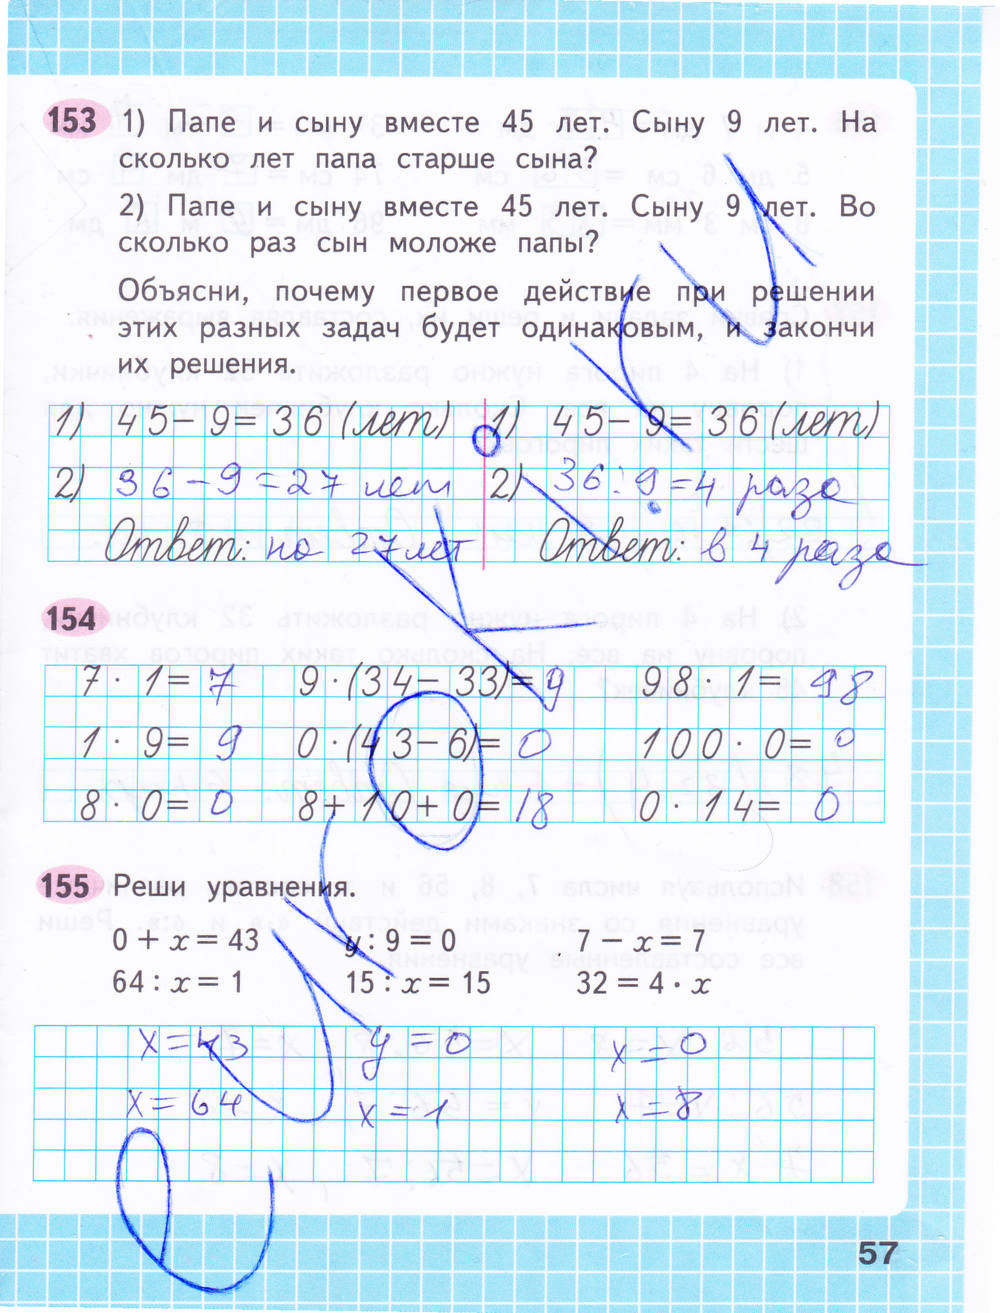 153 1) Папе и сыну вместе 45 лет. Сыну 9 лет. На
сколько лет папа старше сына?
2) Папе и сыну вместе 45 лет. Сыну 9 лет. Во
сколько раз сын моложе папы?
Объясни, почему первое действие при решении
этих разных задач будет одинаковым, и закончи
их решения.
1) 45 − 9 = 36 (лет) 1) 45 − 9 = 36 (лет)
2) 36 − 9 = 27 лет 2) 36 : 9 = 4 раза
Ответ: на 27 лет Ответ: в 4 раза
154
7 · 1 = 7 9 · (34 − 33) = 9 98 · 1 = 98
1 · 9 = 9 0 · (43 − 6) = 0 100 · 0 = 0
8 · 0 = 0 8 + 10 + 0 = 18 0 · 14 = 0
155 Реши уравнения.
0 + x = 43 y : 9 = 0 7 − x = 7
64 : x = 1 15 : x = 15 32 = 4 · x
x = 43 y = 0 x = 0
x = 64 x = 1 x = 8
57